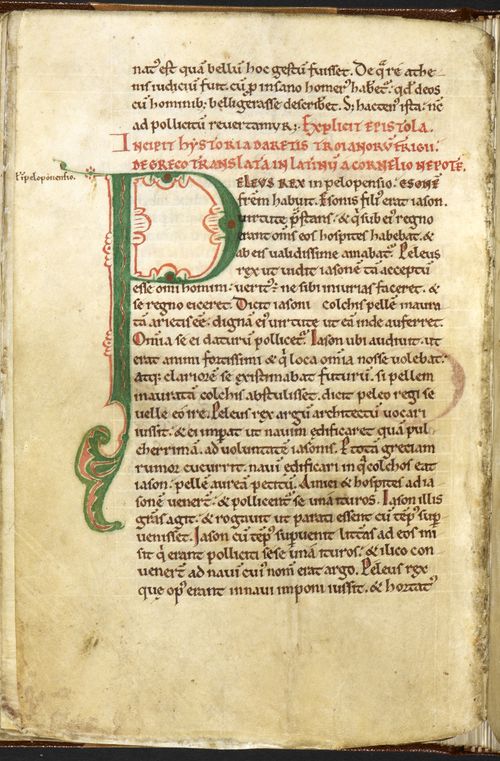 nat᷒ est quā bellū hoc gestū fuisset. De q̄ re athe
nis iudiciū fuit. cū ꝓ insano homer᷒ habet᷑. qđ deos
cū hominib; belligerasse descri̅b̅et. S; hacten᷒ ista. nc̄
ad pollicitū revertamur; Explicit epistola.
Incipit hystoria daretis troianorū frigii.
de greco translata in latinū a cornelio nepote.
ł in peloponensio.
PELEUS REX in pelopensio. ESONĒ
frēm habuit. Esonis fili᷒ erat iason.
virtute p̄stans. & q̄ sub ei᷒ regno
erant om̄s eos hospites habebat. &
ab eis validissime amabat᷑. Peleus
rex ut vidit iasonē tā acceptū
esse om̄i homini. verit᷒ ne sibi iniurias faceret. &
se regno eiceret. Dicit iasoni colchis pellē inaura
tā arietis eē. dignā ei᷒ virtute ut eā inde auferret.
Omnia se ei daturū pollicet᷑. Iason ubi audivit. ut
erat animi fortissimi & q̄ loca om̄ia nosse volebat.
atq; clariorē se existimabat futurū. si pellem
inauratā colchis abstulisset. dicit peleo regi se
velle eo ire. Peleus rex argū architectū vocari
iussit. & ei imꝑat ut navim edificaret quā pul
cherrimā. ad voluntatē iasonis. P totā greciam
rumor cucurrit. navī edificari in q̄ colchos eat
iason. pellē aureā petitū. Amici & hospites ad ia
sonē venerт̄. & pollicent᷑ se unā ituros. Iason illis
grās agit. & rogavit ut parati essent cū temp᷒ suꝑ
venisset. Iason cū temp᷒ suꝑvenit litt̄as ad eos mi
sit q̄ erant polliciti sese unā ituros. & ilico con
venert̄ ad navī cui᷒ nom̄ erat argo. Peleus rex
que op᷒ erant in navi imponi iussit. & hortat᷒